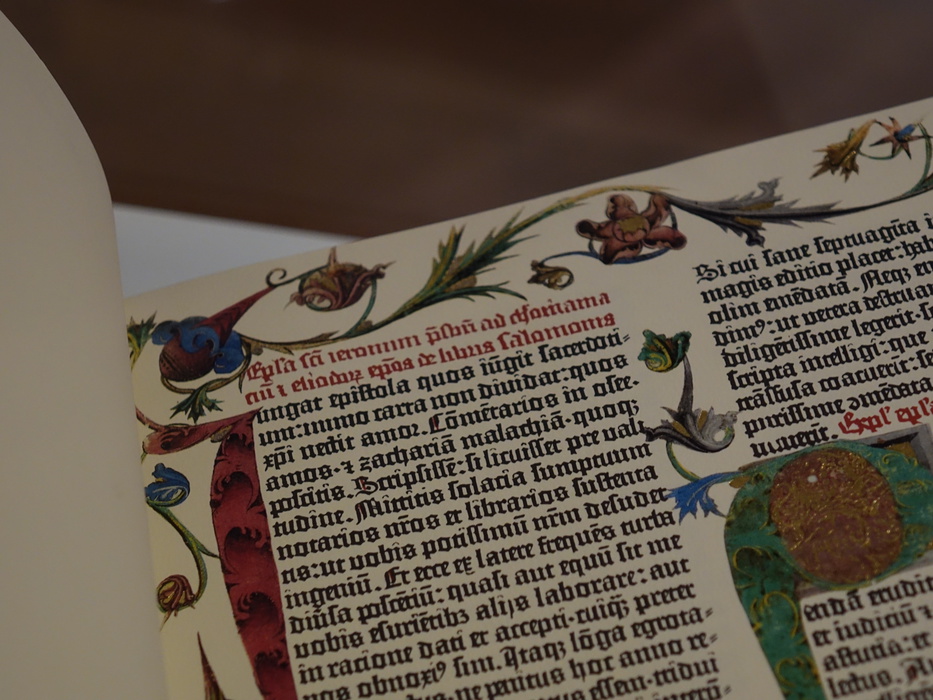 Epl'a sci ieronimi p̄sbiti ad chromaciū
cū ⁊ eliodorū epōs de libris salomonis
iungat epistola quos iūgit sacerdoti-
um: immo carta non diuidat: quos
xp̄i nectit amor. Cōmētarios in osee·
amos· ⁊ zachariā malachiā· quoqȝ
poscitis. Scripsisse: si licuisset pre vali-
tudine. Mittitis solacia sumptuum
notarios nr̄os et librarios sustenta-
tis: ut vobis potissimū nr̄m desudet
ingeniū. Et ecce ex latere frequēs turba
diūsa poscētiū: quasi aut equū sit me
vobis esuriētibȝ alijs laborare: aut
in racione dati et accepti· cuiqȝ preter
vos obnoxiꝰ sim. Itaqȝ lōga egrota-
ne penitus hoc anno re-
essem· tridui
Si cui sane septuagīta
magis editio placet: hab
olim emēdatā. Neqȝ en
dimꝰ: ut vetera destrua
diligētissime legerit· s
scripta intelligi: que
coacuerit: s
purissime
Expl' epl'a
endā erudit
et iudiciū
astutia: et